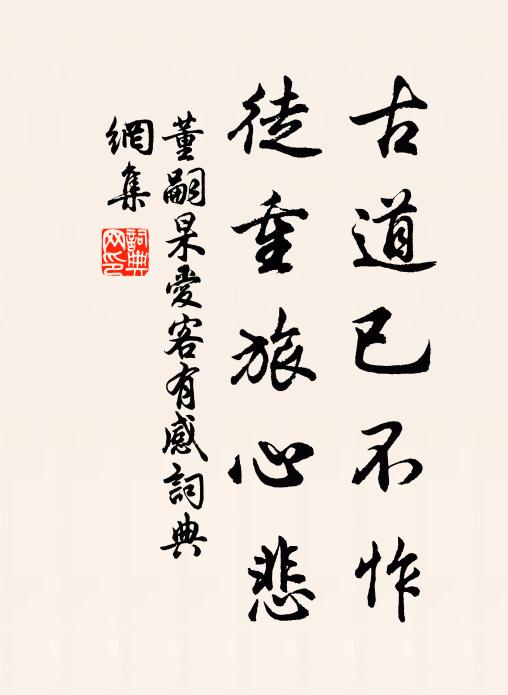 古道已不怍
徒重旅心悲
董嗣杲愛客有感詞典
網集
詞典網印